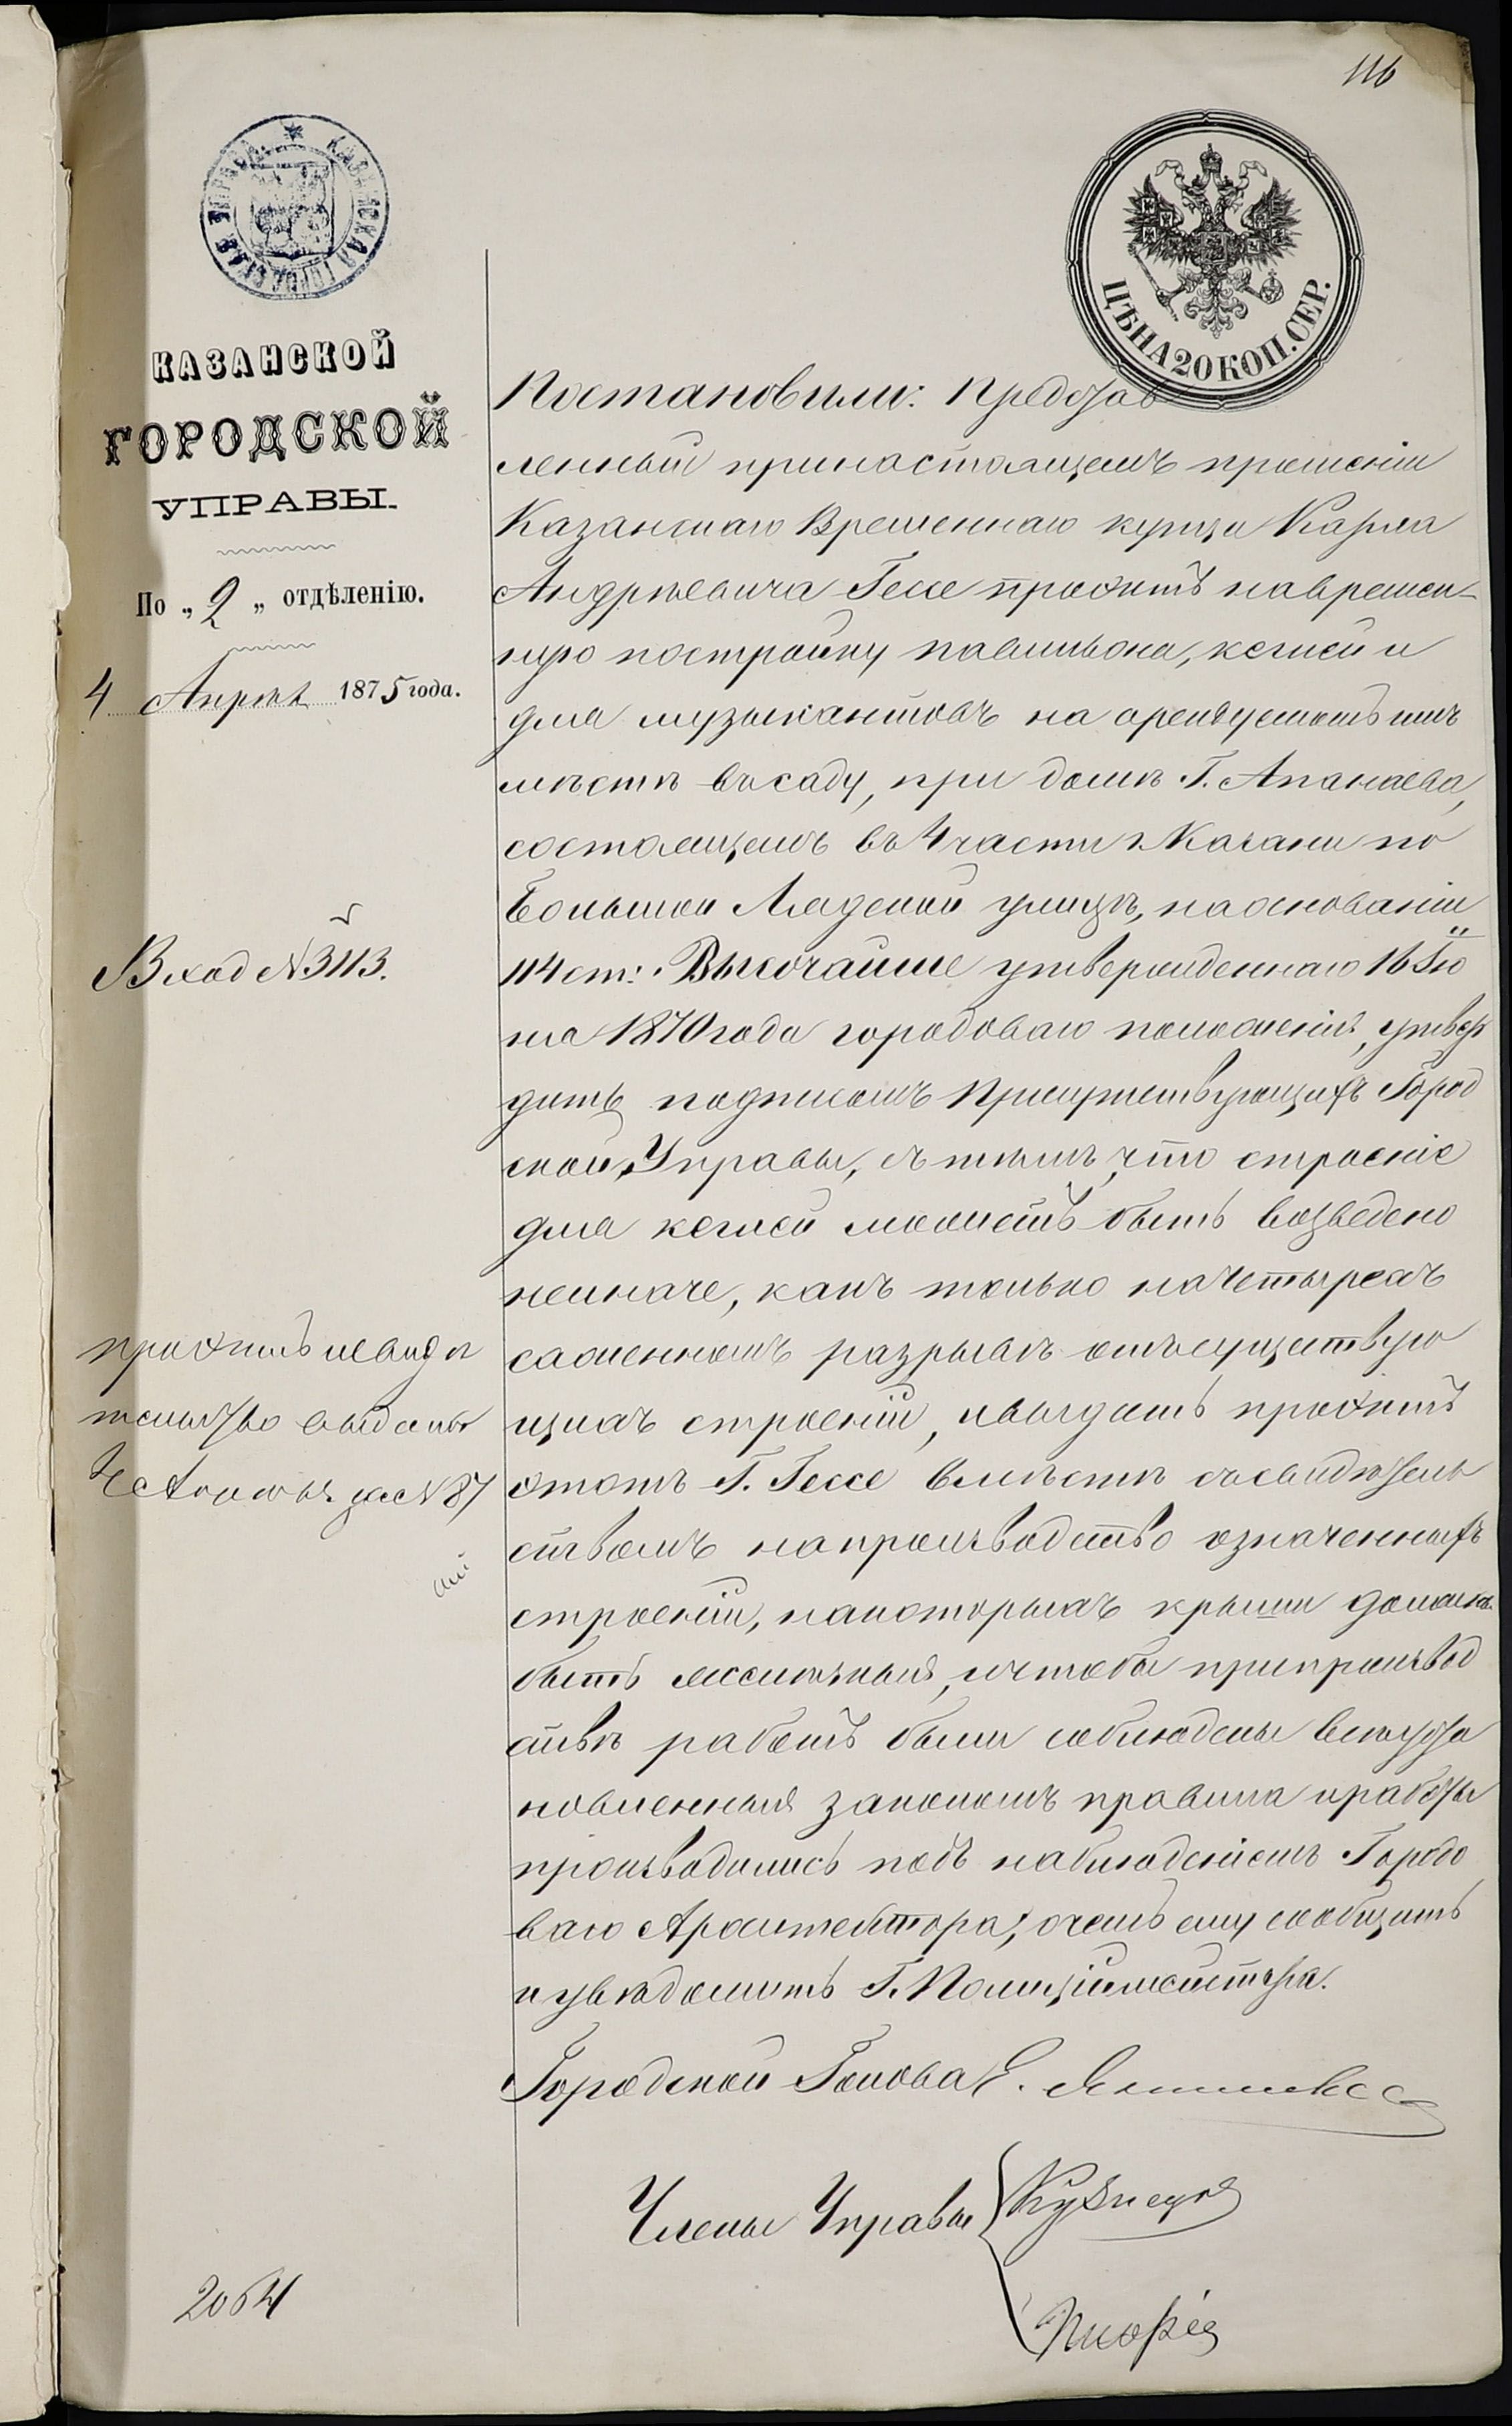 116
КАЗАНСКАЯ ГОРОДСКАЯ УПРАВА
ЦѢНА 20 КОП. СЕР.
КАЗАНСКОЙ
ГОРОДСКОЙ
УПРАВЫ.
По „2„ отдѣленію.
4 Апрѣля 1875 года.
Вход №3113.
проэктъ и свидѣ
тельство выданы
Апрѣля за №87
2064
Постановили: Представ
ленный принастоящемъ прошеніи
Казанскаго Временнаго купца Карла
Андрѣевича Гессе проэктъ навремен-
ную постройку павильона, кеглей и
для музыкантовъ на арендуемомъ имъ
мѣстѣ въ саду, при домѣ Г. Апанаева,
состоящемъ въ 4 части г. Казани по
Большой Лядской улицѣ, на основаніи
114 ст: Высочайше утвержденнаго 16 Iю
ня 1870 года городоваго положенія, утвер
дить подписомъ Присутствующихъ Город
ской Управы, съ тѣмъ, что строеніе
для кеглей можетъ быть возведено
неиначе, какъ только на четырехъ
саженномъ разрывѣ отъ существую
щихъ строеній, и выдать проэктъ
этотъ Г. Гессе вмѣстѣ съ свидѣтель
ствомъ на производство означенныхъ
строеній, на которыхъ крыши должны
быть желѣзныя, и чтобы при производ
ствѣ работъ были соблюдены всѣ уста
новленныя закономъ правила и работы
производились подъ наблюденіемъ Городо
ваго Архитектора, о чемъ ему сообщить
и увѣдомить Г. Полиціймейстера.
Городской Голова Е.
Члены Управы Кузнецов